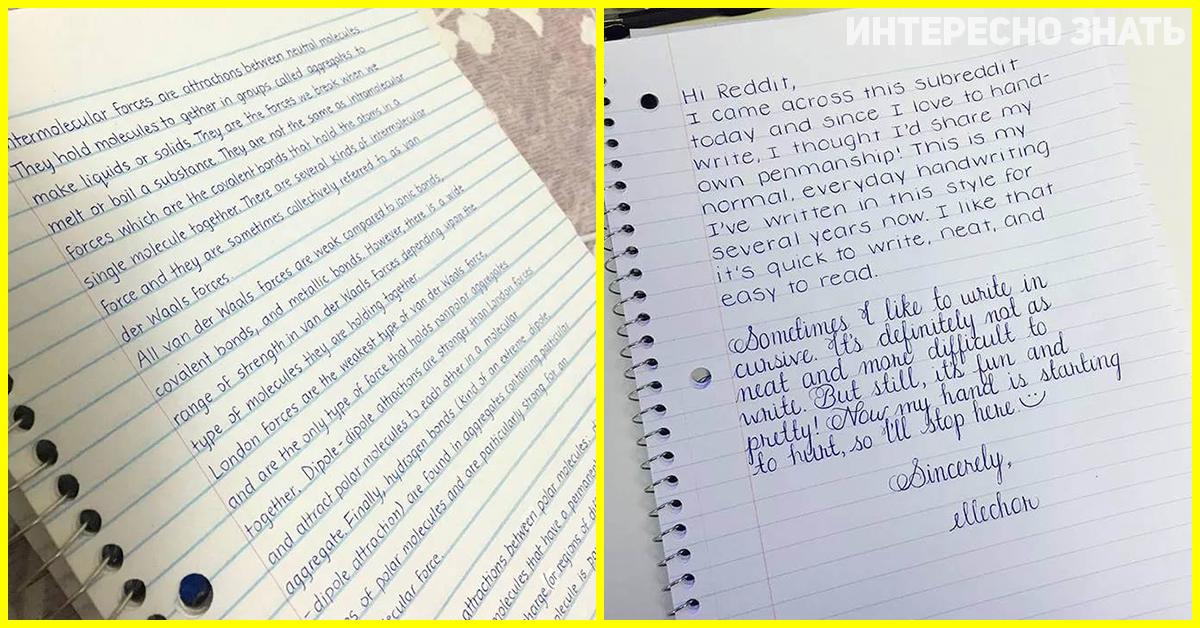 Intermolecular forces are attractions between neutral molecules.
They hold molecules to gether in groups called aggregates to
make liquids or solids. They are the forces we break when we
melt or boil a substance. They are not the same as intramolecular
forces which are the covalent bonds that hold the atoms in a
single molecule together. There are several kinds of intermolecular
force and they are sometimes collectively referred to as van
der Waals forces.
All van der Waals forces are weak compared to ionic bonds,
covalent bonds, and metallic bonds. However, there is a wide
range of strength in van der Waals forces depending upon the
type of molecules they are holding together.
London forces are the weakest type of van der Waals force,
and are the only type of force that holds nonpolar aggregates
together. Dipole-dipole attractions are stronger than London forces
and attract polar molecules to each other in a molecular
aggregate. Finally, hydrogen bonds (kind of an extreme dipole
-dipole attraction) are found in aggregates containing particular
s of polar molecules and are particularly strong for an
ecular force.
attractions between polar molecules.
molecules that have a permanent
charge (or regions of di
lecule is
ИНТЕРЕСНО ЗНАТЬ
Hi Reddit,
I came across this subreddit
today and since I love to hand-
write, I thought I'd share my
own penmanship! This is my
normal, everyday handwriting
I've written in this style for
several years now. I like that
it's quick to write, neat, and
easy to read.
Sometimes I like to write in
cursive. It's definitely not as
neat and more difficult to
write. But still, it's fun and
pretty! Now my hand is starting
to hurt, so I'll stop here.
Sincerely,
ellechor